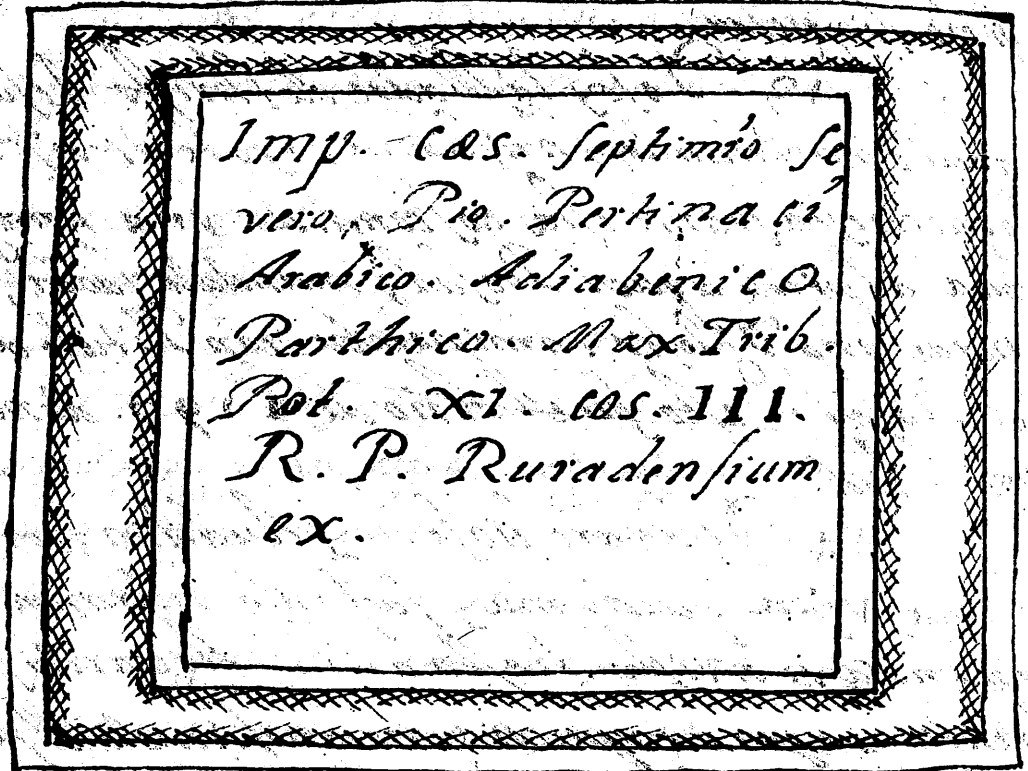 Imp. Cæs. Septimio Se
vero. Pio. Pertinaci
Arabico. Adiabenico
Parthico. Max. Trib.
Pot. XI. cos. III.
R. P. Ruradensium
ex.